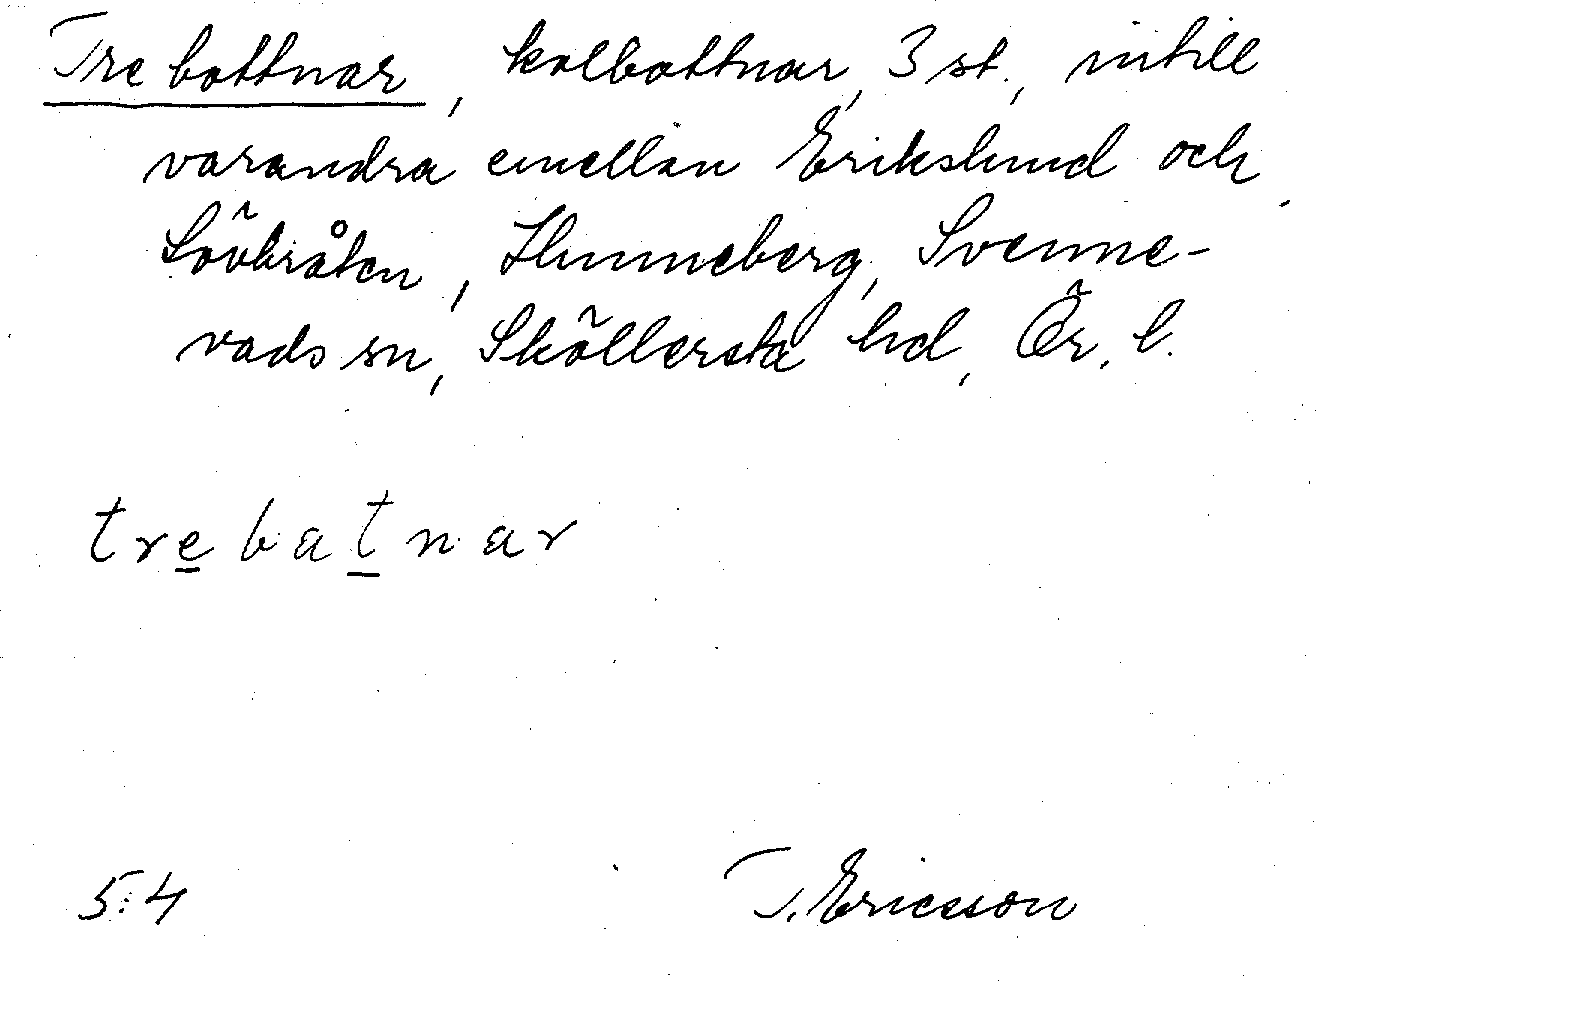 Tre bottnar, kolbottnar, 3 st., intill
varandra emellan Erikslund och
Lövbråten, Hunneberg, Svenne-
vads sn, Sköllersta hd, Ör. l.
trebatnar
5:4
T. Ericsson